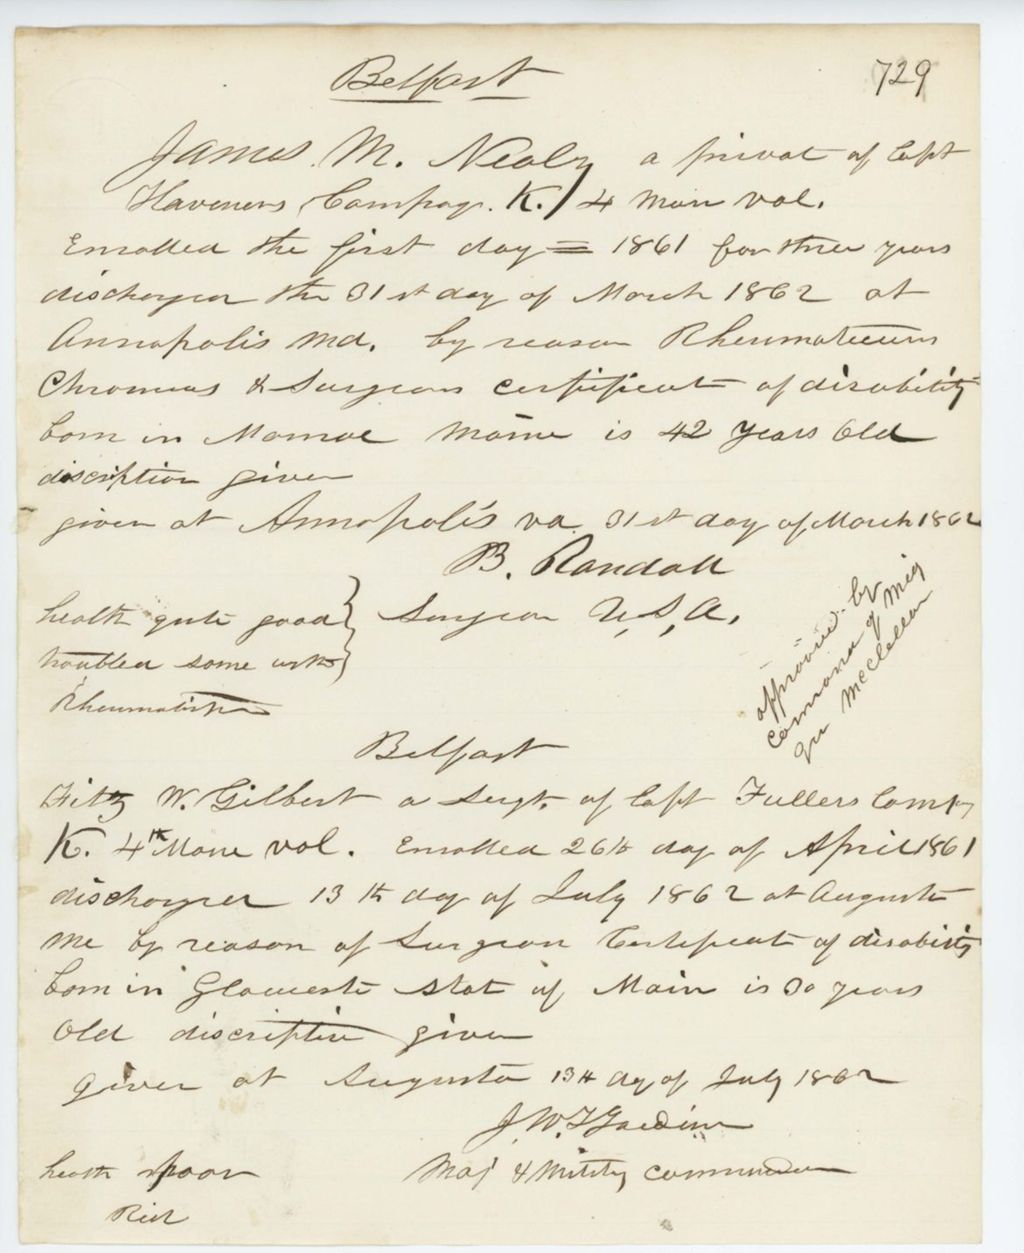 Belfast
729
James M. Nealy a privat of Capt
Haveners Compay. K. 4 Main vol.
Enrolled the first day = 1861 for three years
dischargd the 31st day of March 1862 at
Annapolis Md. by reason Rheumateeum
Chronicus & Surgeons certificate of disability
born in Monroe Maine is 42 years Old
discription given
given at Annopolis va 31st day of March 1862
B. Randall
Surgeon U.S.A.
health quite good
troubled some with
Rheumatism
approved by
command of Mig
gn McClellan
Belfast
Fitz W. Gilbert a Sergt. of Capt Fullers Compy
K. 4th Maine vol. Enrolled 26th day of April 1861
discharged 13th day of July 1862 at Augusta
Me by reason of Surgeon Certificate of disability
born in Glouceste Stat of Main is 30 years
Old discription given
given at Augusta 13th day of July 1862
J. W. T. Gardiner
Maj & Military commander
health poor